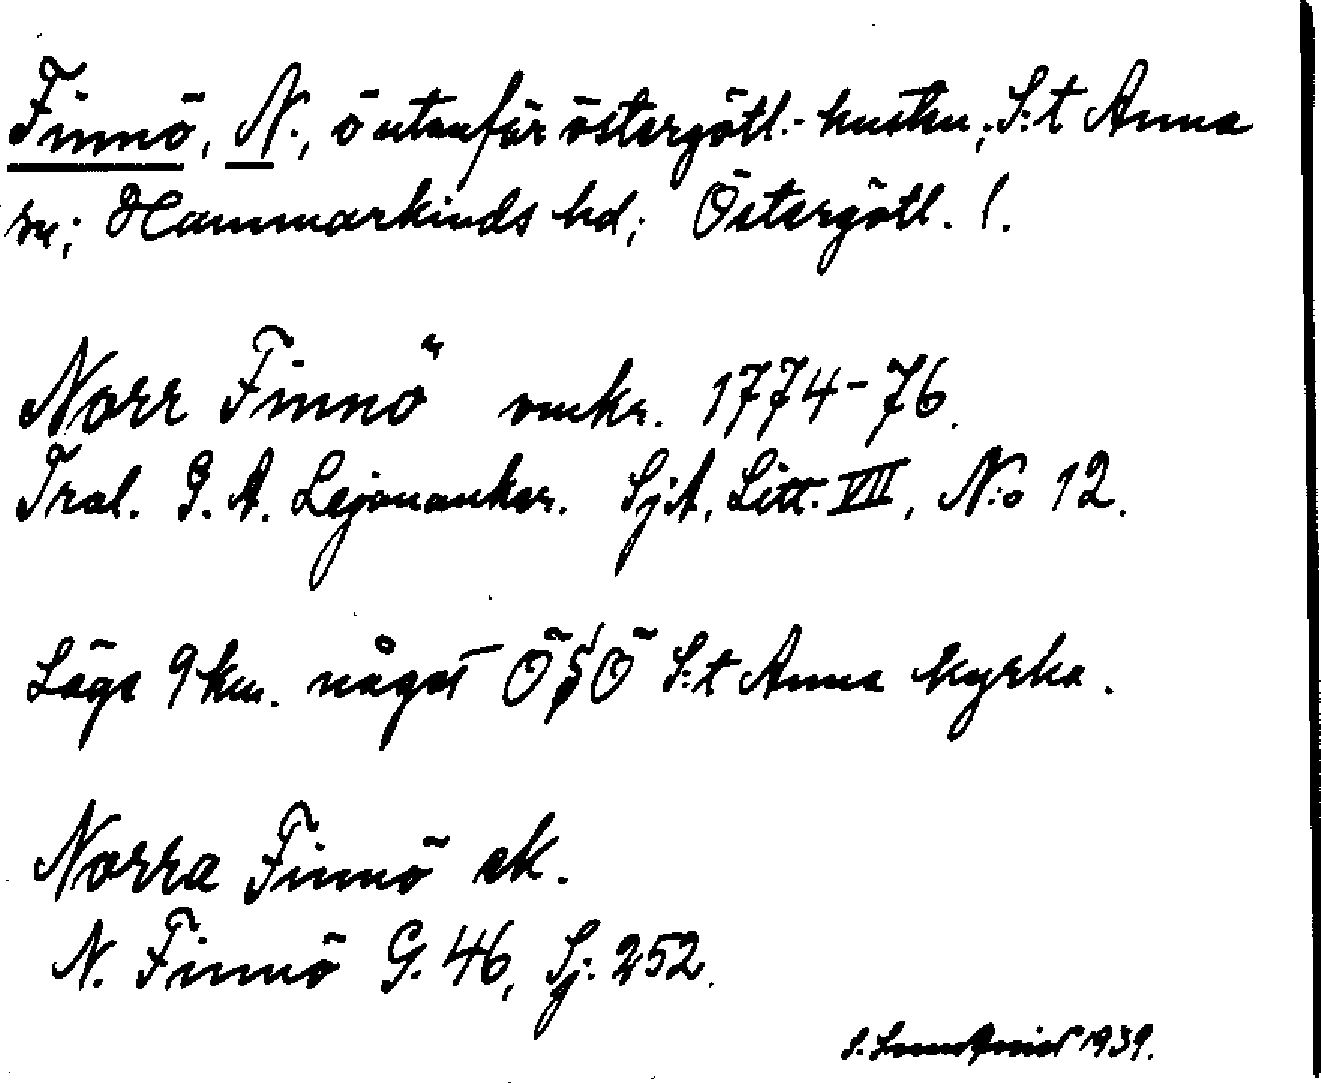 Finnö, N., ö utanför östergötl.-kusten, S:t Anna
sn; Hammarkinds hd; Östergötl. l.
Norr Finnö omkr. 1774-76.
Tral. G. A. Lejonanker. SjA, Litt. VII, N:o 12.
Läge 9 km. något ÖSÖ S:t Anna kyrka.
Norra Finnö ek.
N. Finnö G. 46, Sj. 252.
1939.